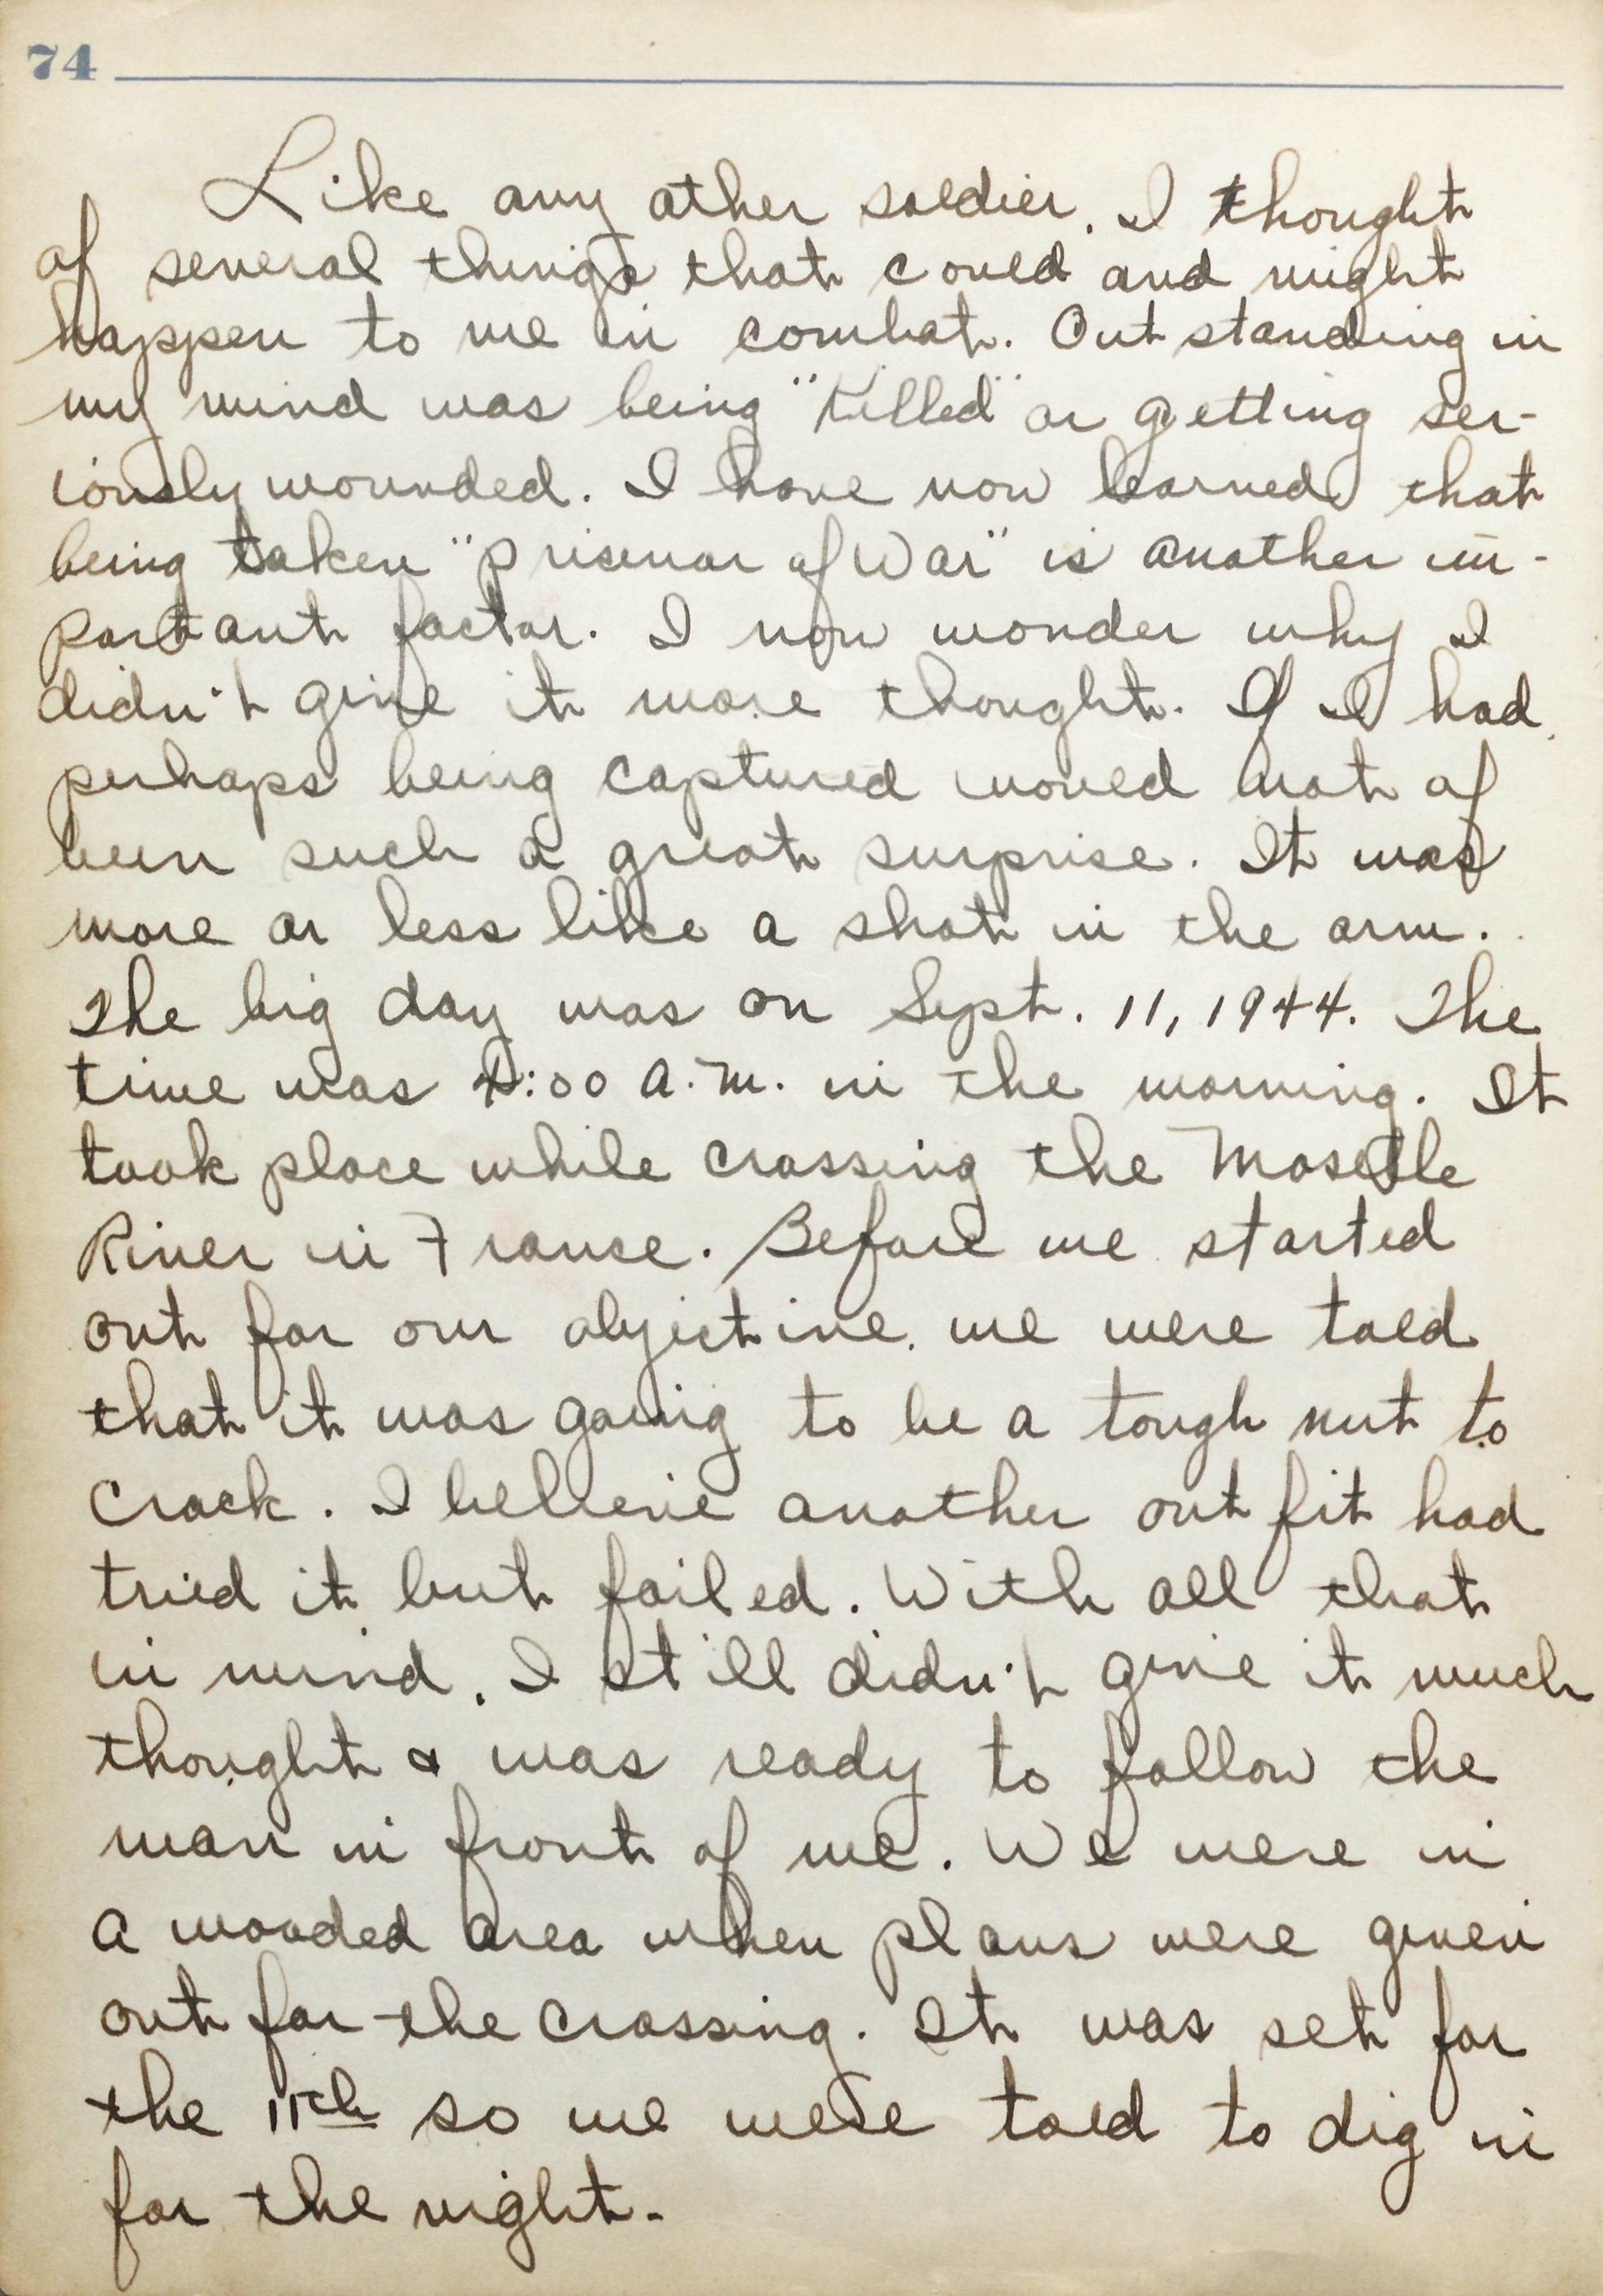 74
Like any other soldier, I thought
of several things that could and might
happen to me in combat. Outstanding in
my mind was being "Killed" or getting ser-
iously wounded. I have now learned that
being taken "prisenor of War" is another im-
portant factor. I now wonder why I
didn't give it more thought. If I had,
perhaps being captured would not of
been such a great surprise. It was
more or less like a shot in the arm.
The big day was on Sept. 11, 1944. The
time was :00 A.M. in the morning. It
took place while crossing the Moselle
River in France. Before we started
out for our objective, we were told
that it was going to be a tough nut to
crack. I believe another outfit had
tried it but failed. With all that
in mind, I still didn't give it much
thought & was ready to follow the
man in front of me. We were in
a wooded area when plans were given
out for the crossing. It was set for
the 11th so we were told to dig in
for the night.